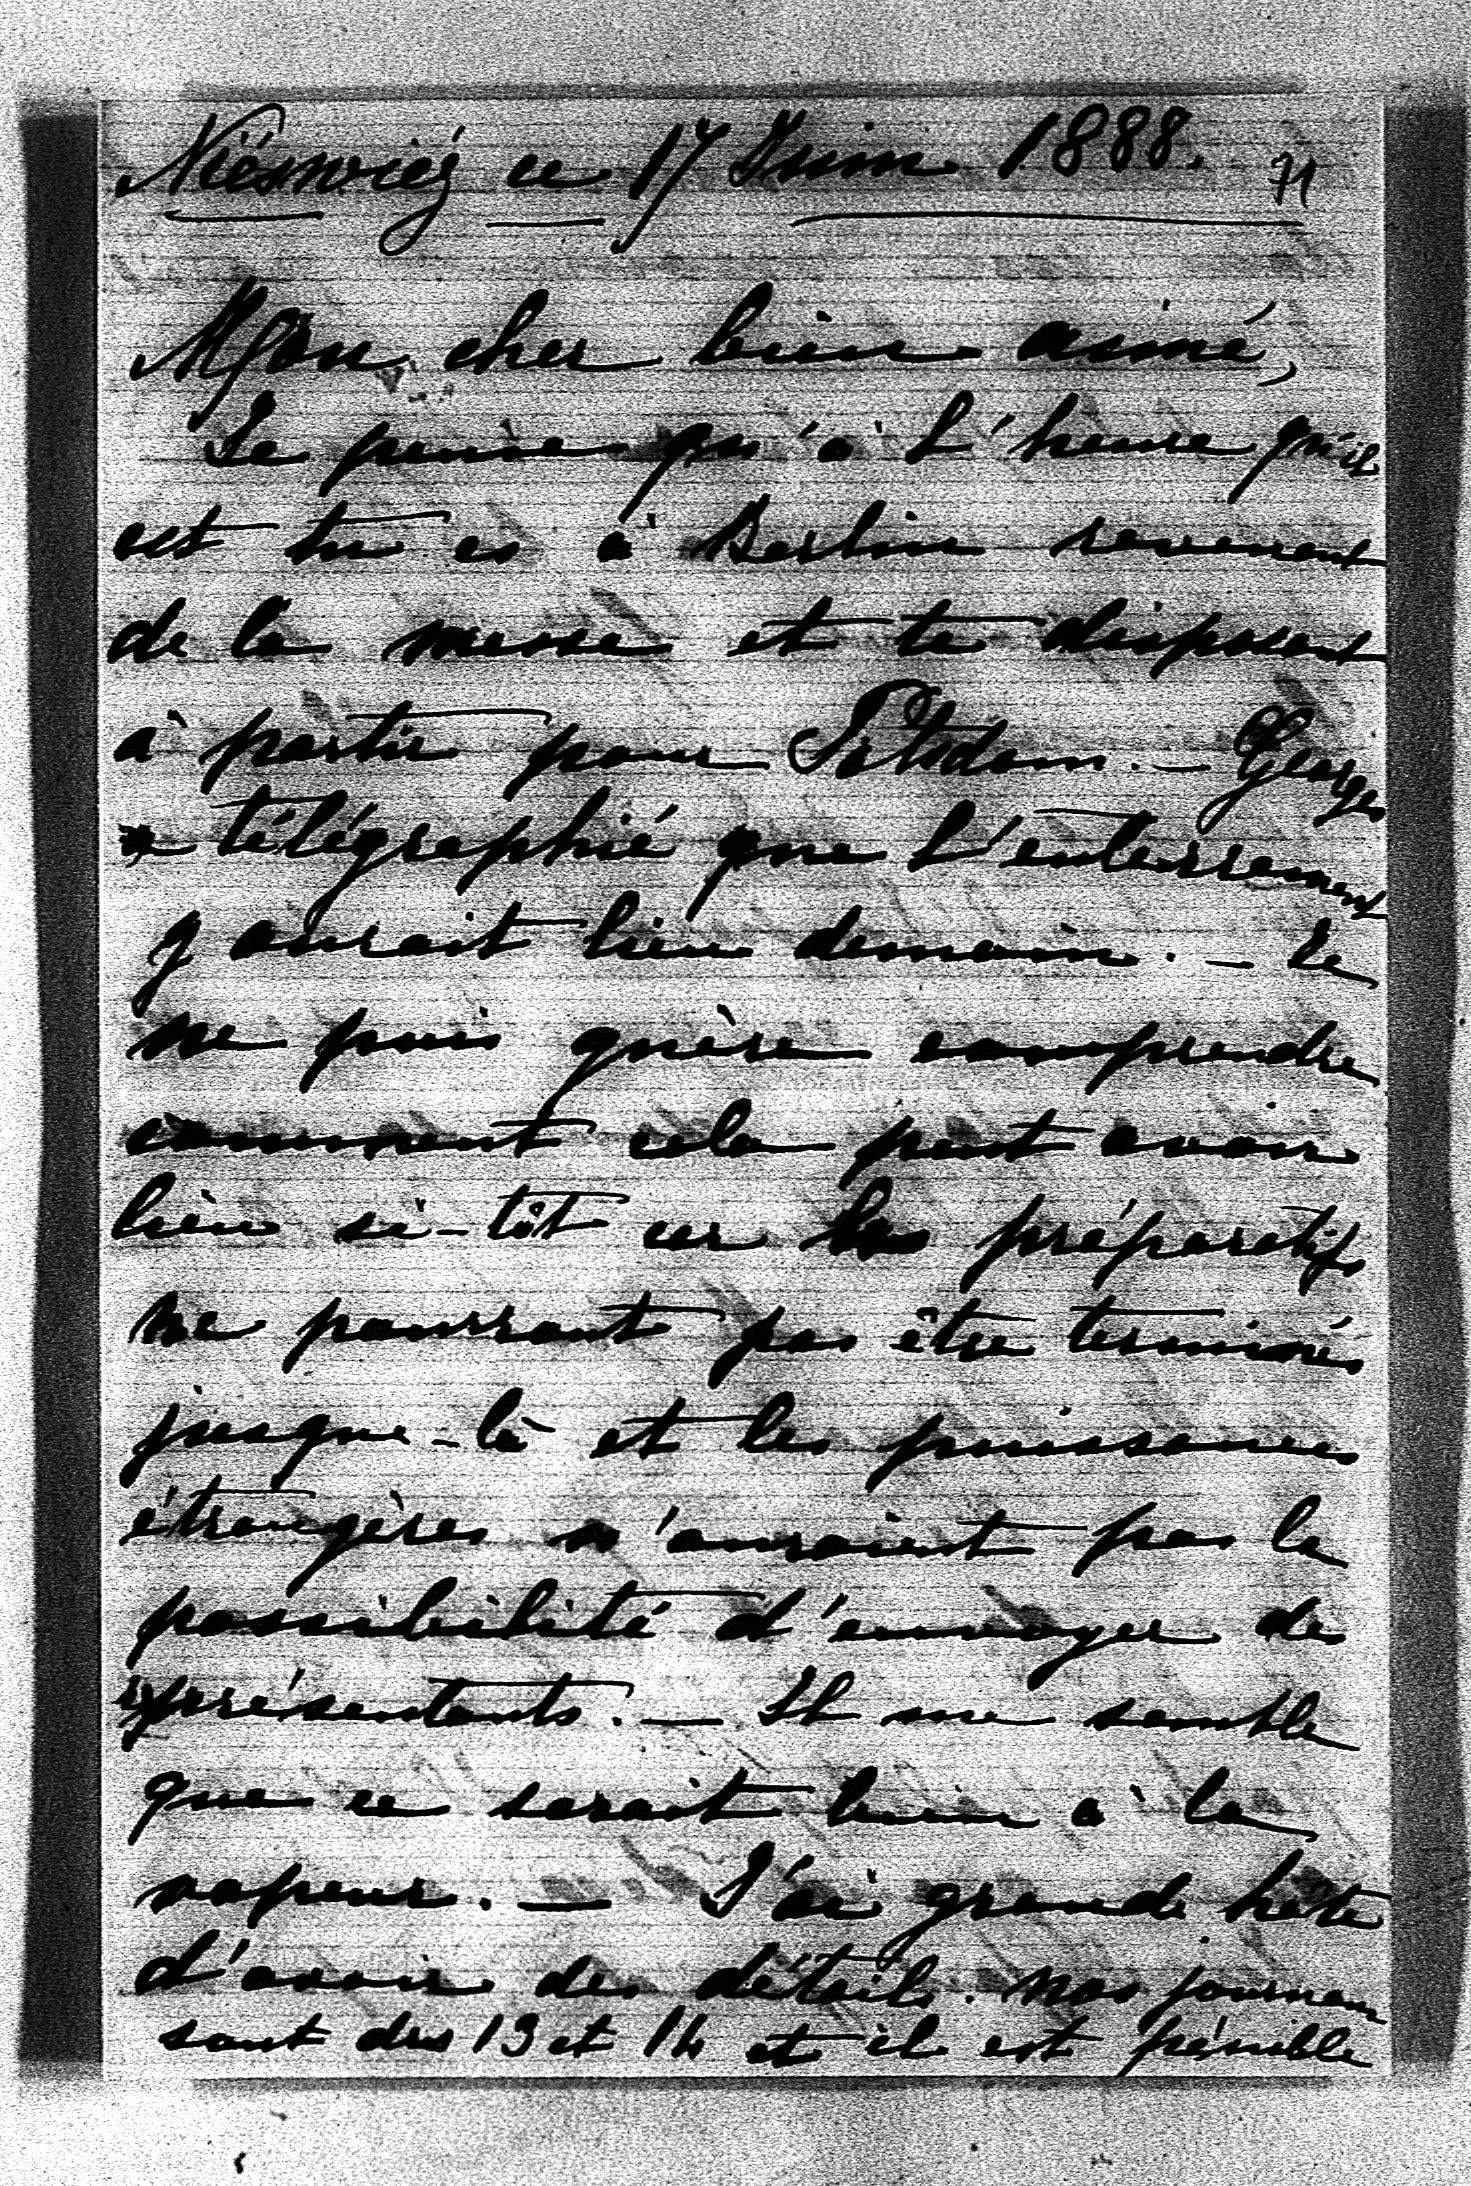 Niéświéż ce 17 Juin 1888. 71
Mon cher bien aimé,
Je pense qu'à l'heure qu'il
est tu es à Berlin revenant
de la messe et te disposant
à partir pour Potsdam. — Georges
a télégraphié que l'enterrement
y aurait lieu demain. — Je
ne puis guère comprendre
comment cela peut avoir
lieu si-tôt car les préparatifs
ne pourront pas être terminés
jusque-là et les puissances
étrangères n'auraient pas la
possibilité d'envoyer des
représentants. — Il me semble
que ce serait bien à la
vapeur. — J'ai grande hâte
d'avoir des détails. Nos journaux
sont des 13 et 14 et il est pénible